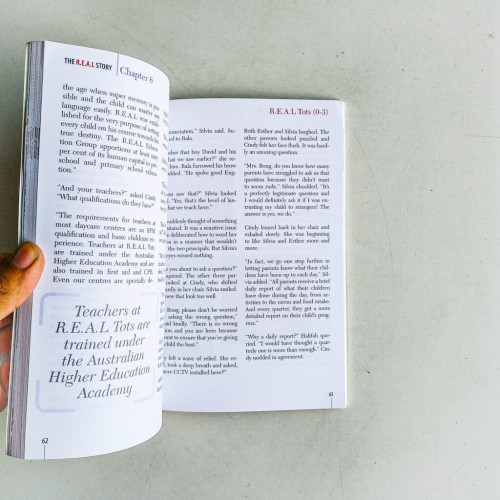 THE R.E.A.L STORY
Chapter 6
the age when super memory is pos-
sible and the child can master any
language easily. R.E.A.L was estab-
lished for the very purpose of setting
every child on his course towards his
true destiny. The R.E.A.L Educa-
tion Group apportions at least ten
per cent of its human capital to pre-
school and primary school educa-
tion."
"And your teachers?" asked Cindy.
"What qualifications do they have?"
"The requirements for teachers at
most daycare centres are an SPM
qualification and basic children ex-
perience. Teachers at R.E.A.L Tots
are trained under the Australian
Higher Education Academy and are
also trained in first aid and CPR.
Even our centres are specially de-
Teachers at
R.E.A.L Tots are
trained under
the Australian
Higher Education
Academy
62
R.E.A.L Tots (0-3)
Silvia said.
to Balo.
that boy David and his
what we saw earlier?" she re-
Bala furrowed his brow
nodded. "He spoke good Eng-
you saw that?" Silvia looked
"Yes, that's the level of lan-
that we teach here."
suddenly thought of something
It was a sensitive issue
deliberated how to word her
in a manner that wouldn't
the two principals. But Silvia's
eyes missed nothing.
you about to ask a question?"
The other three par-
looked at Cindy, who shifted
in her chair. Silvia smiled.
now that look too well.
Bong, please don't be worried
asking the wrong question,"
kindly. "There is no wrong
and you are here because
want to ensure that you're giving
child the best."
felt a wave of relief. She re-
took a deep breath and asked,
there CCTV installed here?"
Both Esther and Silvia laughed. The
other parents looked puzzled and
Cindy felt her face flush. It was hard-
ly an amusing question.
"Mrs. Bong, do you know how many
parents have struggled to ask us that
question because they didn't want
to seem rude," Silvia chuckled. "It's
a perfectly legitimate question and
I would definitely ask it if I was en-
trusting my child to strangers! The
answer is yes, we do."
Cindy leaned back in her chair and
exhaled slowly. She was beginning
to like Silvia and Esther more and
more.
"In fact, we go one step further in
letting parents know what their chil-
dren have been up to each day," Sil-
via added. "All parents receive a brief
daily report of what their children
have done during the day, from ac-
tivities to the menu and food intake.
And every quarter, they get a more
detailed report on their child's prog-
ress."
"Why a daily report?" Halifah que-
ried. "I would have thought a quar-
terly one is more than enough." Cin-
dy nodded in agreement.
63